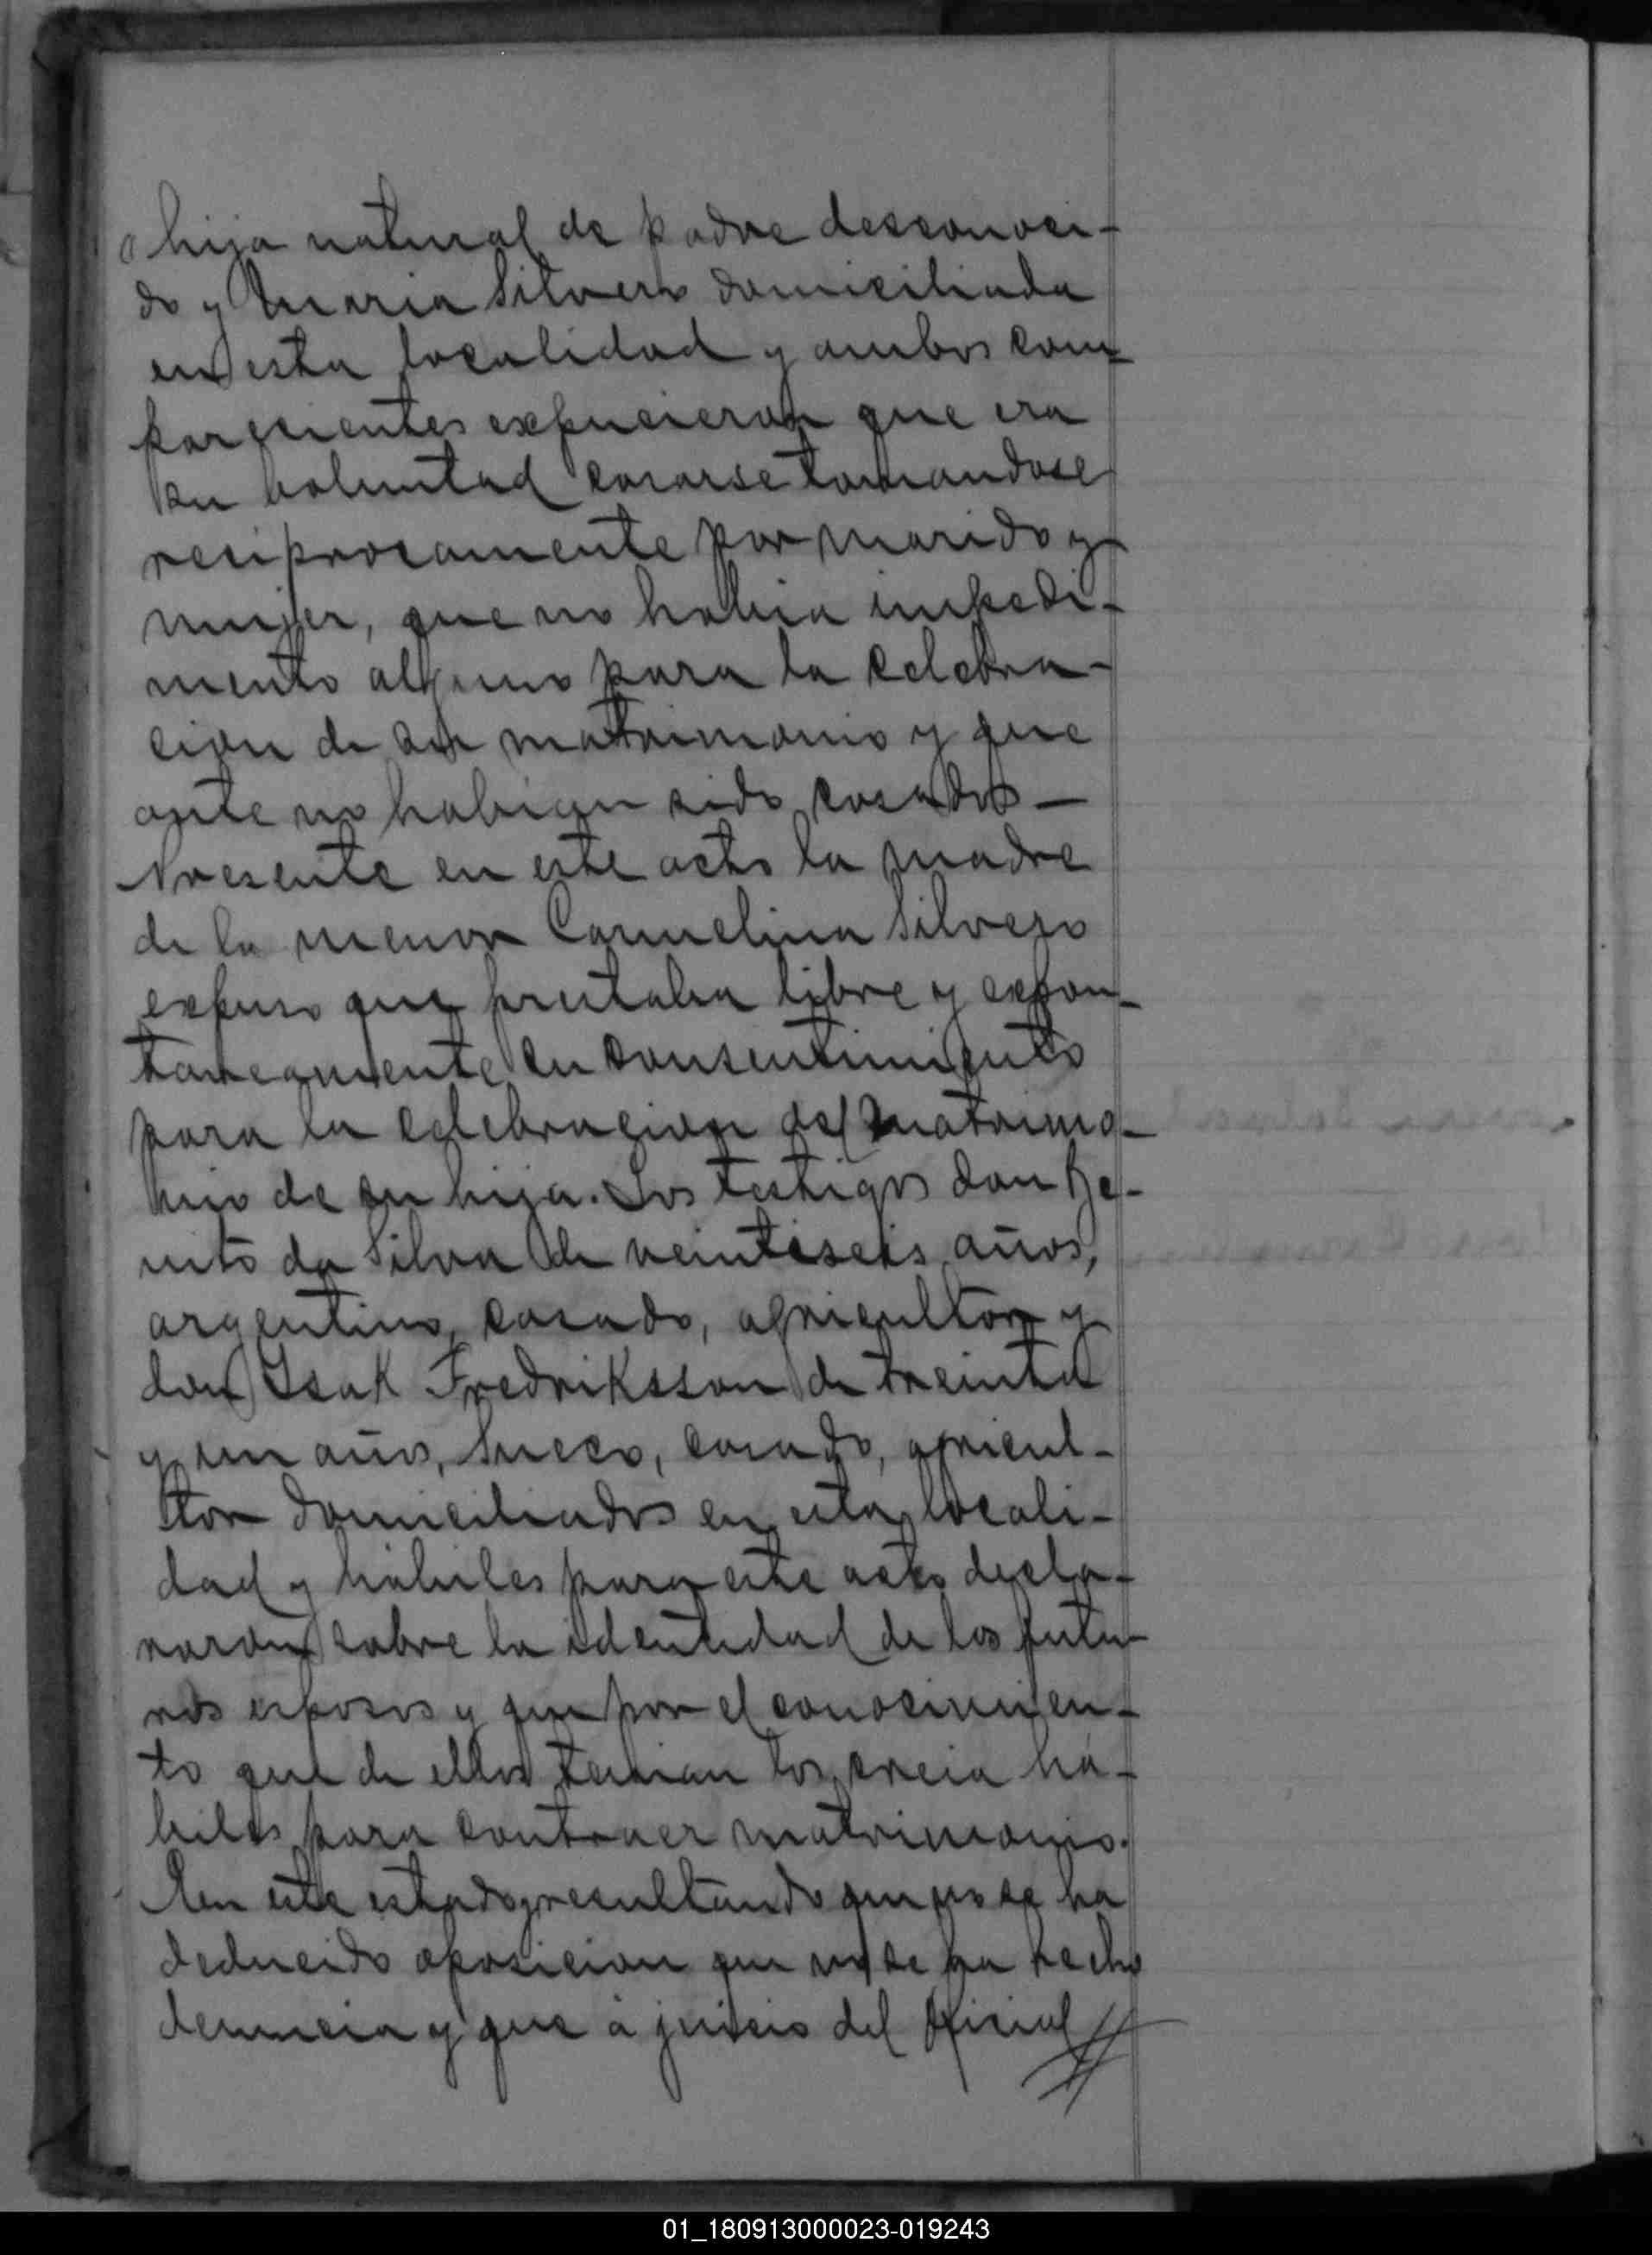 hija natural de padre desconoci-
do y Maria Silvero domiciliada
en esta localidad y ambos com-
parecientes expucieron que era
su voluntad cacarse tomandose
reciprocamente por marido y
mujer, que no habia impedi-
mento alguno para la celebra-
cion de su matrimonio y que
ante no habian sido casados —
Presente en este acto la madre
de la menor Carmelina Silvero
expuso que prestaba libre y expon-
taneamente su consentimiento
para la celebracion del matrimo-
nio de su hija. Los testigos don Be-
nito da Silva de veintiseis años,
argentino, casado, agricultor y
don Isak Fredriksson de treinta
y un años, Sueco, casado, agricul-
tor domiciliados en esta locali-
dad y hábiles para este acto decla-
raron sobre la identidad de los futu-
ros esposos y que por el conocimien-
to que de ellos tenian los creia há-
biles para contraer matrimonio.
En este estado y resultando que no se ha
deducido oposicion que no se ha hecho
denuncia y que á juicio del Oficial
01_180913000023-019243